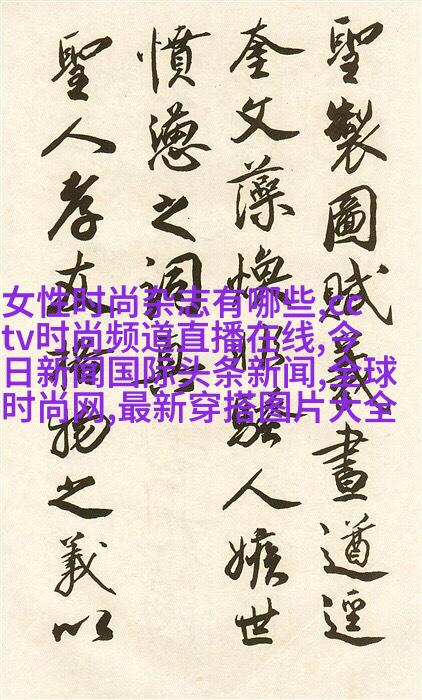 聖製圖賦義畫遒逕
奎文藻煥騷人嫉世
憤懣之詞
聖人孝格物之義以
女性时尚杂志有哪些,cc
tv时尚频道直播在线,今
日新闻国际头条新闻,全球
时尚网,最新穿搭图片大全